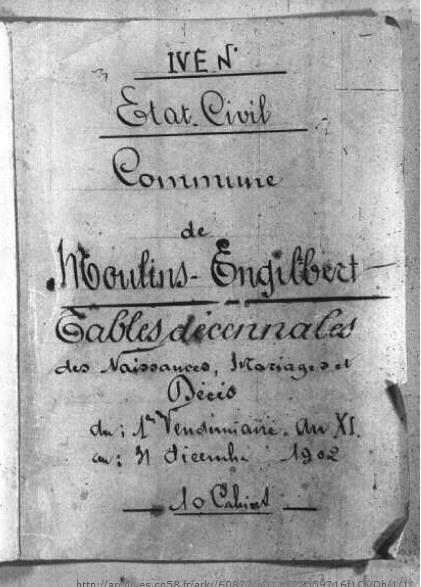 IV E N°
Etat-Civil
Commune
de
Moulins-Engilbert
Tables décennales
des Naissances, Mariages et
Décès
du: 1er Vendémiaire. An XI.
au: 31 décembre 1902
10 Cahiers